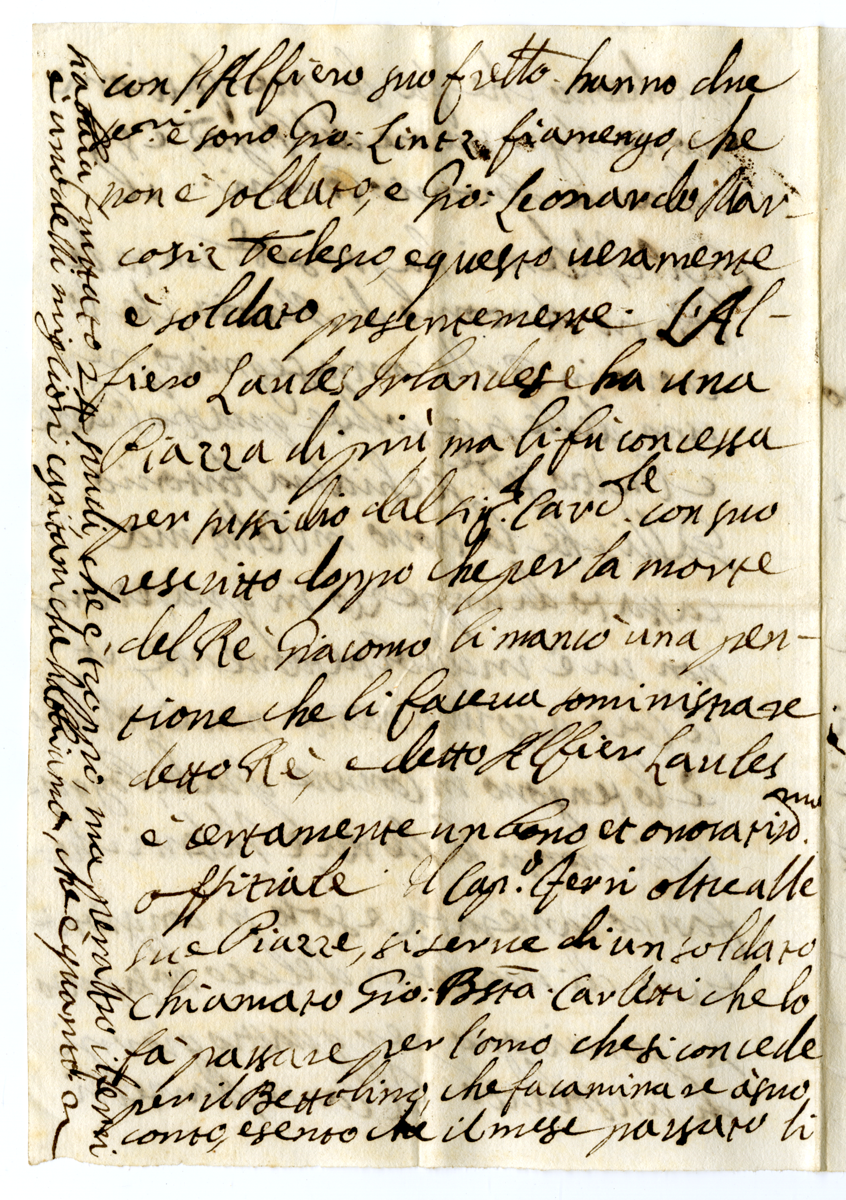 con l'Alfiero suo fretto. hanno due
seri è sono Gio: Lintz fiamengo, che
non è soldato, e Gio: Leonardo Mar-
cosiz Tedesco, e questo ueramente
è soldato presentemente. L'Al-
fiero Laules Irlandese ha una
Piazza di più ma li fù concessa
per sussidio dal sig.r Card.le con suo
rescritto doppo che per la morte
del Rè Giacomo li mancò una pen-
tione che li faceua somministrare
detto Rè, e detto Alfier Laules
è certamente un bono et onoratiss.mo
offitiale. Il Cap.o ferri oltre alle
sue Piazze, si serue di un soldato
chiamato Gio: Bsta. Carletti che lo
fà passare per l'omo che si concede
per il Bettolino, che fa caminare à suo
conto, e sento che il mese passato li
habbia fruttato 24 scudi, che è troppo, ma peraltro il ferri
è uno delli migliori capitani che habbiamo, che è quanto &